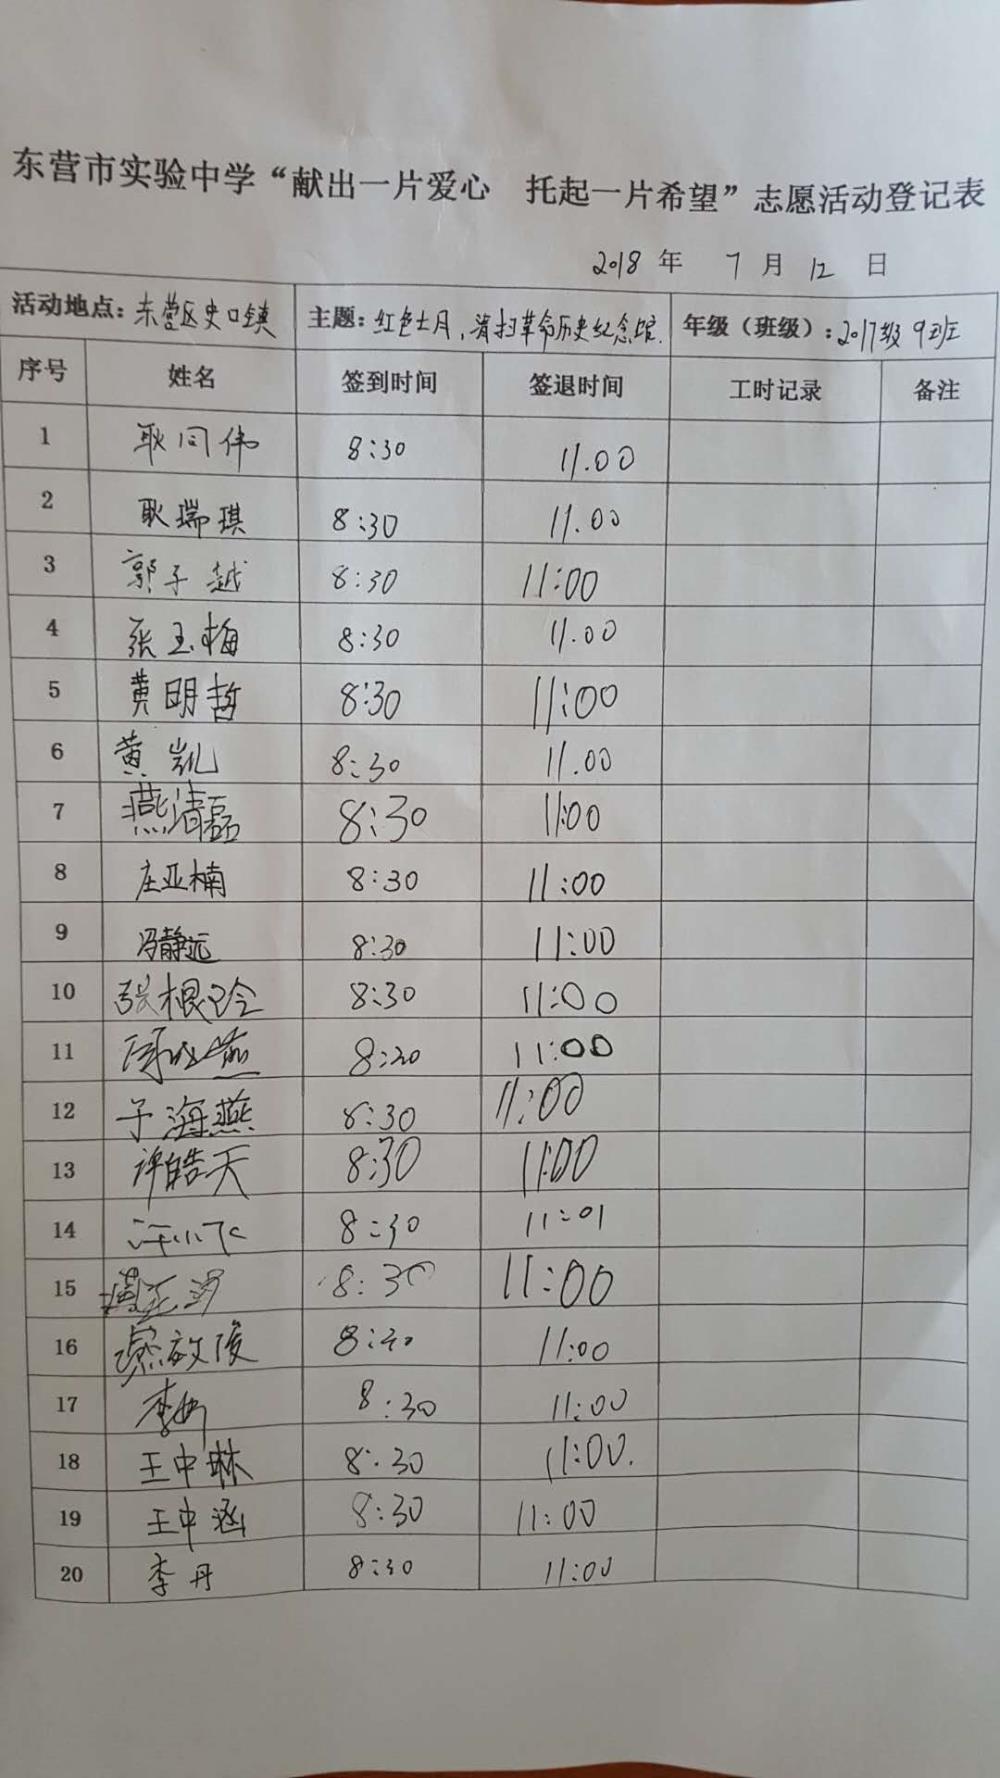 东营市实验中学“献出一片爱心 托起一片希望”志愿活动登记表
2018 年 7 月 12 日
活动地点：东营区史口镇 主题：红色七月，清扫革命历史纪念馆. 年级（班级）：2017级9班
序号 姓名 签到时间 签退时间 工时记录 备注
1 耿同伟 8:30 11.00
2 耿瑞琪 8:30 11.00
3 郭子越 8:30 11:00
4 张玉梅 8:30 11.00
5 黄明哲 8:30 11:00
6 黄凯 8:30 11.00
7 燕清磊 8:30 11:00
8 庄亚楠 8:30 11:00
9 冯静远 8:30 11:00
10 张根玲 8:30 11:00
11 8:30 11:00
12 于海燕 8:30 11:00
13 许皓天 8:30 11:00
14 8:30 11:01
15 8:30 11:00
16 8:30 11:00
17 李 8:30 11:00
18 王中琳 8:30 11:00.
19 王中涵 8:30 11:00
20 李丹 8:30 11:00